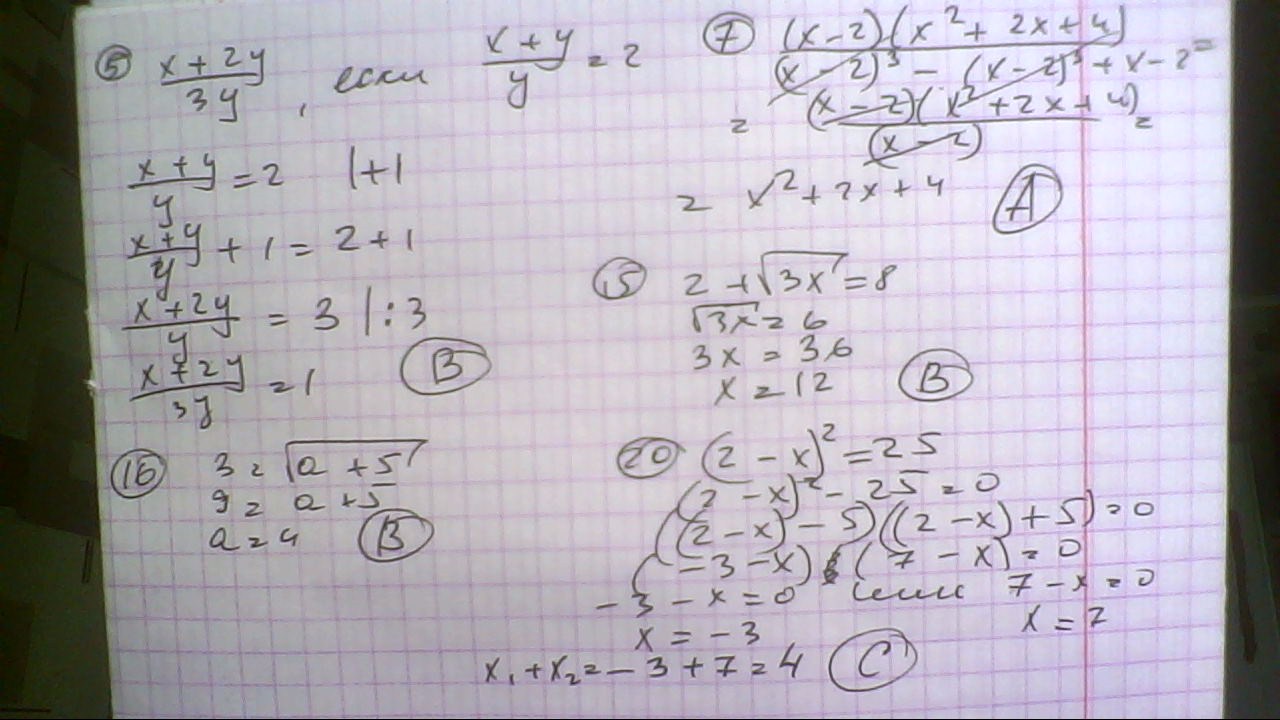 ⑤ (x + 2y)/(3y), если (x + y)/y = 2
(x + y)/y = 2 |+1
(x+y)/y + 1 = 2 + 1
(x + 2y)/y = 3 |:3
(x + 2y)/(3y) = 1 Ⓑ
⑦ ((x - 2)(x² + 2x + 4))/((x - 2)³ - (x - 2)³ + x - 2) =
= ((x - 2)(x² + 2x + 4))/(x - 2) =
= x² + 2x + 4 Ⓐ
⑮ 2 + √(3x) = 8
√(3x) = 6
3x = 36
x = 12 Ⓑ
⑯ 3 = √(a + 5)
9 = a + 5
a = 4 Ⓑ
⑳ (2 - x)² = 25
(2 - x)² - 25 = 0
((2 - x) - 5)((2 - x) + 5) = 0
(-3 - x)(7 - x) = 0
-3 - x = 0 или 7 - x = 0
x = -3 x = 7
x₁ + x₂ = -3 + 7 = 4 Ⓒ